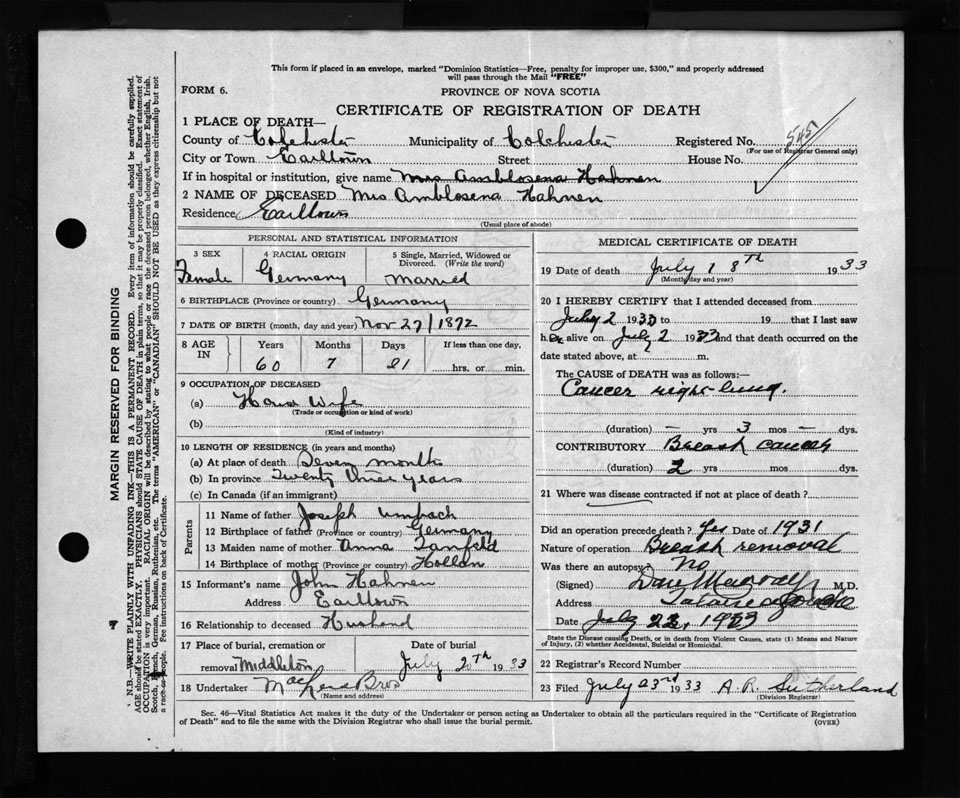 This form if placed in an envelope, marked "Dominion Statistics—Free, penalty for improper use, $300," and properly addressed
will pass through the Mail "FREE"
FORM 6.
PROVINCE OF NOVA SCOTIA
CERTIFICATE OF REGISTRATION OF DEATH
1 PLACE OF DEATH—
County of Colchester Municipality of Colchester Registered No. 545
(For use of Registrar General only)
City or Town Earltown Street House No.
If in hospital or institution, give name Mrs Amblosena Hahnen
2 NAME OF DECEASED Mrs Amblosena Hahnen
Residence Earltown
(Usual place of abode)
PERSONAL AND STATISTICAL INFORMATION
3 SEX 4 RACIAL ORIGIN 5 Single, Married, Widowed or
Divorced. (Write the word)
Female Germany Married
6 BIRTHPLACE (Province or country) Germany
7 DATE OF BIRTH (month, day and year) Nov 27/1872
8 AGE IN Years Months Days If less than one day,
60 7 21 hrs. or min.
9 OCCUPATION OF DECEASED
(a) House Wife
(Trade or occupation or kind of work)
(b)
(Kind of industry)
10 LENGTH OF RESIDENCE (in years and months)
(a) At place of death Seven months
(b) In province Twenty three years
(c) In Canada (if an immigrant)
Parents
11 Name of father Joseph Umbach
12 Birthplace of father (Province or country) Germany
13 Maiden name of mother Anna
14 Birthplace of mother (Province or country) Hollan
15 Informant's name John Hahnen
Address Earltown
16 Relationship to deceased Husband
17 Place of burial, cremation or Date of burial
removal Middleton July 2th 1933
18 Undertaker MacLene Bros
(Name and address)
MEDICAL CERTIFICATE OF DEATH
19 Date of death July 18th 1933
(Month, day and year)
20 I HEREBY CERTIFY that I attended deceased from
July 2 1933 to 19 that I last saw
her alive on July 2 1933 and that death occurred on the
date stated above, at m.
The CAUSE OF DEATH was as follows:—
Cancer right lung.
(duration) — yrs 3 mos — dys.
CONTRIBUTORY Breast cancer
(duration) 2 yrs mos dys.
21 Where was disease contracted if not at place of death?
Did an operation precede death? Yes Date of 1931
Nature of operation Breast removal
Was there an autopsy? No
(Signed) Dan M.D.
Address Tatamagouche
Date July 22, 1933
State the Disease causing Death, or in death from Violent Causes, state (1) Means and Nature
of Injury, (2) whether Accidental, Suicidal or Homicidal.
22 Registrar's Record Number
23 Filed July 23rd 1933 A. R. Sutherland
(Division Registrar)
Sec. 46—Vital Statistics Act makes it the duty of the Undertaker or person acting as Undertaker to obtain all the particulars required in the "Certificate of Registration
of Death" and to file the same with the Division Registrar who shall issue the burial permit.
(OVER)
MARGIN RESERVED FOR BINDING
N.B.—WRITE PLAINLY WITH UNFADING INK—THIS IS A PERMANENT RECORD. Every item of information should be carefully supplied.
AGE should be stated EXACTLY. PHYSICIANS should STATE CAUSE OF DEATH in plain terms, so that it may be properly classified. Exact statement of
OCCUPATION is very important. RACIAL ORIGIN will be described by stating to what people or race the deceased person belonged, whether English, Irish,
Scotch, French, German, Russian, Ruthenian, etc. The terms "AMERICAN" or "CANADIAN" SHOULD NOT BE USED as they express citizenship but not
a race or people. See instructions on back of Certificate.